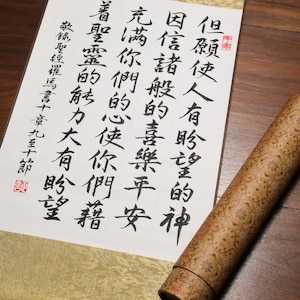 但願使人有盼望的神
因信諸般的喜樂平安
充滿你們的心使你們藉
着聖靈的能力大有盼望
敬錄聖經羅馬書十章九至十節